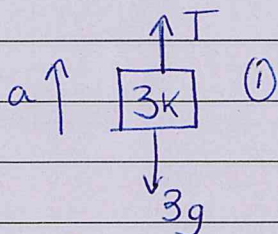 T
a 3K ①
3g